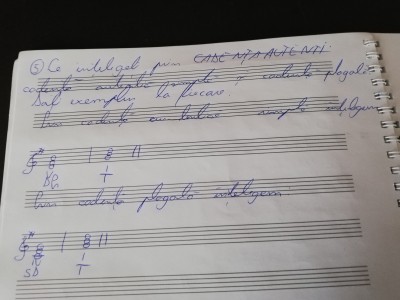 ⑤ Ce înțelegeți prin CADENȚA AUTENTI.
cadență autentică simplă și cadență plagală
Dați exemplu la fiecare.
Prin cadență autentică simplă înțelegem
D T
Prin cadență plagală înțelegem:
SD T